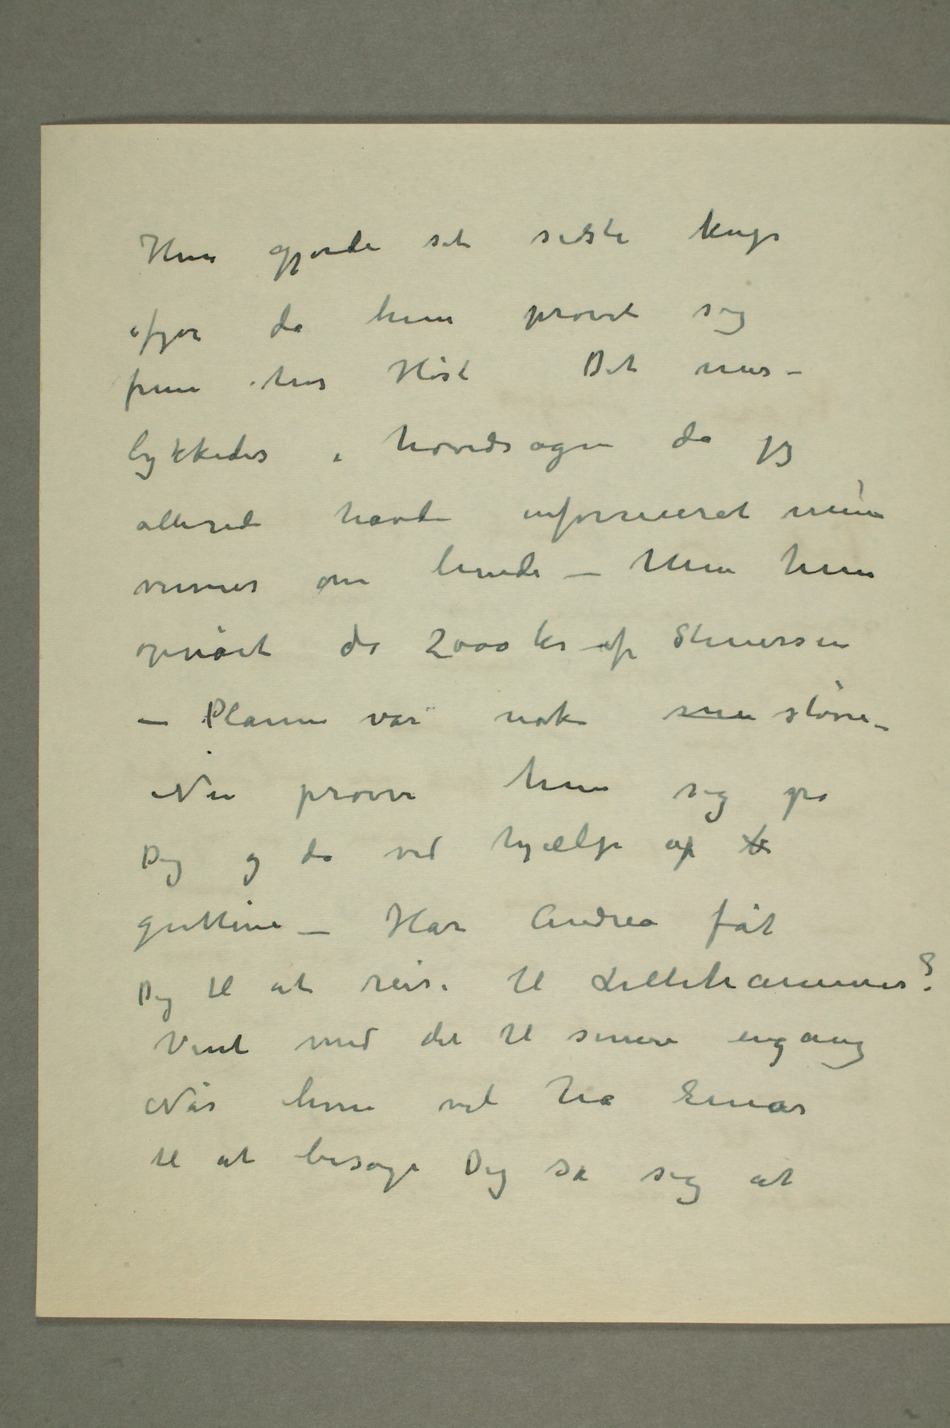 Hun gjorde sit siste kup
ifjor da hun prøvet sig
frem hos Høst Det mis–
lykkedes i hovedsagen da jeg
allerede havde informeret mine
venner om hende – Men hun
opnået da 2000 kr af Stenersen
– Planen var nok men større –
Nu prøver hun sig på
Dig og da ved hjælp af
guttene – Har Andrea fåt
Dig til at reise til Lillehammer?
Vent med det til senere engang
Når hun vil ha Einar
til at besøge Dig så sig at